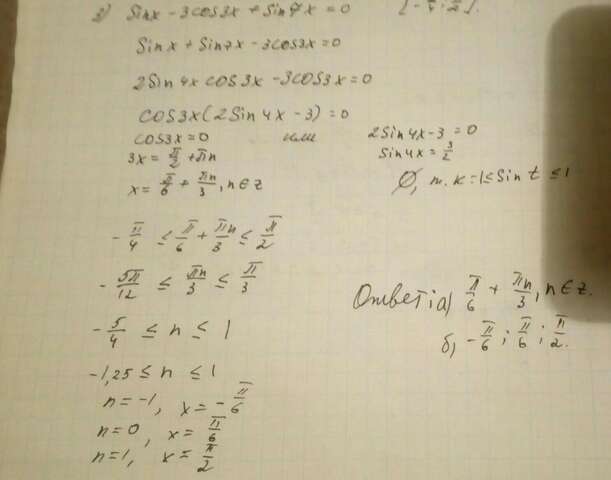 2) Sinx - 3cos3x + Sin7x = 0 [-π/4; π/2].
Sinx + Sin7x - 3cos3x = 0
2Sin4x cos3x - 3cos3x = 0
cos3x(2Sin4x - 3) = 0
cos3x = 0 или 2Sin4x - 3 = 0
3x = π/2 + πn Sin4x = 3/2
x = π/6 + πn/3, n∈z ∅, т.к -1 ≤ Sin t ≤ 1
-π/4 ≤ π/6 + πn/3 ≤ π/2
-5π/12 ≤ πn/3 ≤ π/3
-5/4 ≤ n ≤ 1
-1,25 ≤ n ≤ 1
n = -1, x = -π/6
n = 0, x = π/6
n = 1, x = π/2
Ответ: а) π/6 + πn/3, n∈z.
б) -π/6; π/6; π/2.